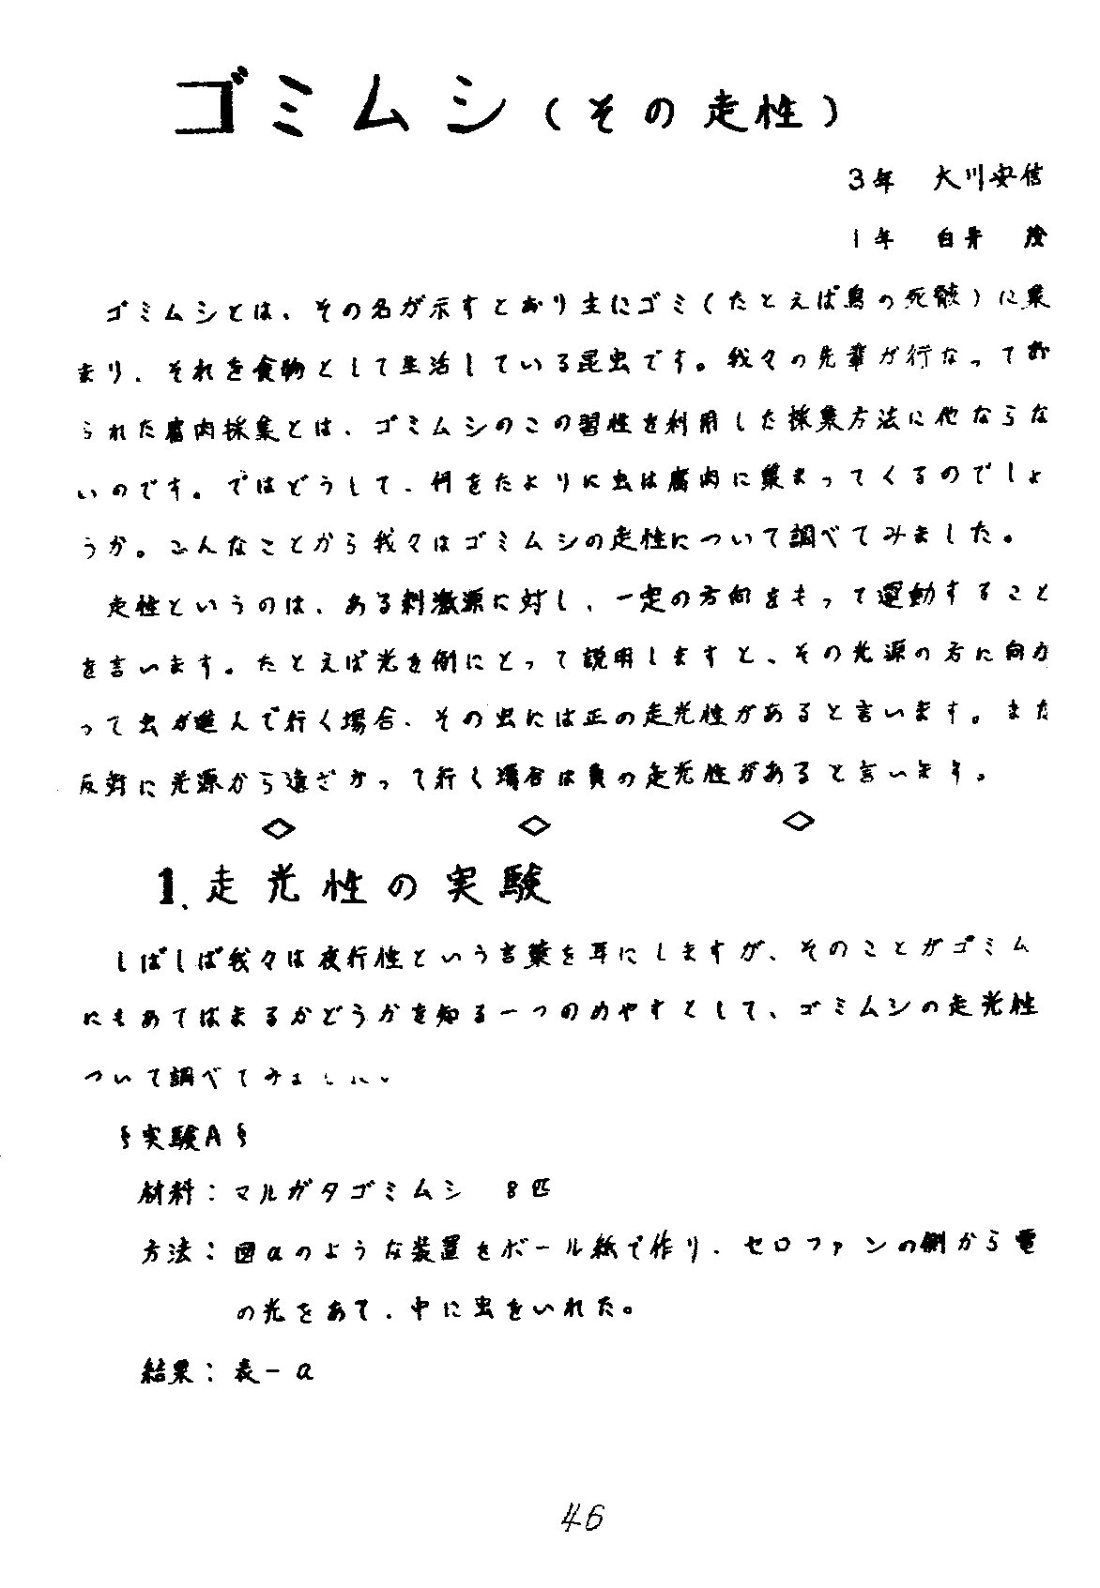 ゴミムシ(その走性)
3年 大川安信
1年 白井 茂
ゴミムシとは、その名が示すとおり主にゴミ(たとえば鳥の死骸)に集
まり、それを食物として生活している昆虫です。我々の先輩が行なってお
られた腐肉採集とは、ゴミムシのこの習性を利用した採集方法に他ならな
いのです。ではどうして、何をたよりに虫は腐肉に集まってくるのでしょ
うか。こんなことから我々はゴミムシの走性について調べてみました。
走性というのは、ある刺激源に対し、一定の方向をもって運動すること
を言います。たとえば光を例にとって説明しますと、その光源の方に向か
って虫が進んで行く場合、その虫には正の走光性があると言います。また
反対に光源から遠ざかって行く場合は負の走光性があると言います。
◇ ◇ ◇
1. 走光性の実験
しばしば我々は夜行性という言葉を耳にしますが、そのことがゴミム
にもあてはまるかどうかを知る一つのめやすとして、ゴミムシの走光性
ついて調べてみま
§実験A§
材料:マルガタゴミムシ 8匹
方法:図aのような装置をボール紙で作り、セロファンの側から電
の光をあて、中に虫をいれた。
結果:表-a
46